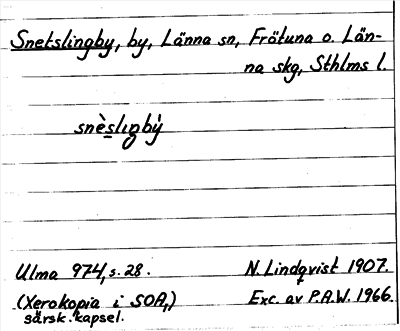 Snetslingby, by, Länna sn, Frötuna o. Län-
na skg, Sthlms l.
snès̲lıgbẏ̀
Ulma 974, s. 28.
N. Lindqvist 1907.
(Xerokopia i SOA,)
särsk. kapsel.
Exc. av P.A.W. 1966.